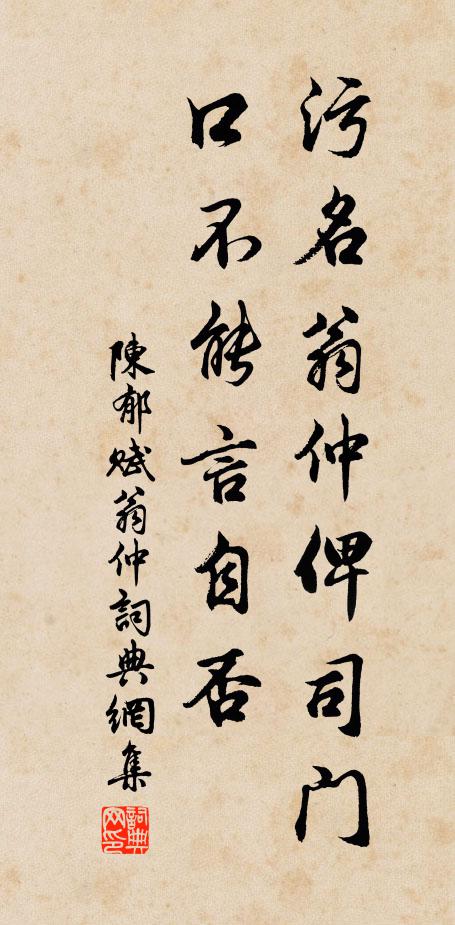 污名翁仲俾司門
口不能言自否
陳郁賦翁仲詞典網集
詞典网印